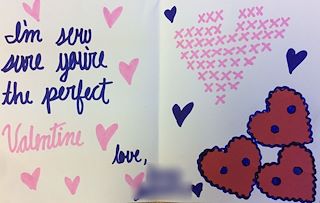 I'm sew
sure you're
the perfect
Valentine
love,